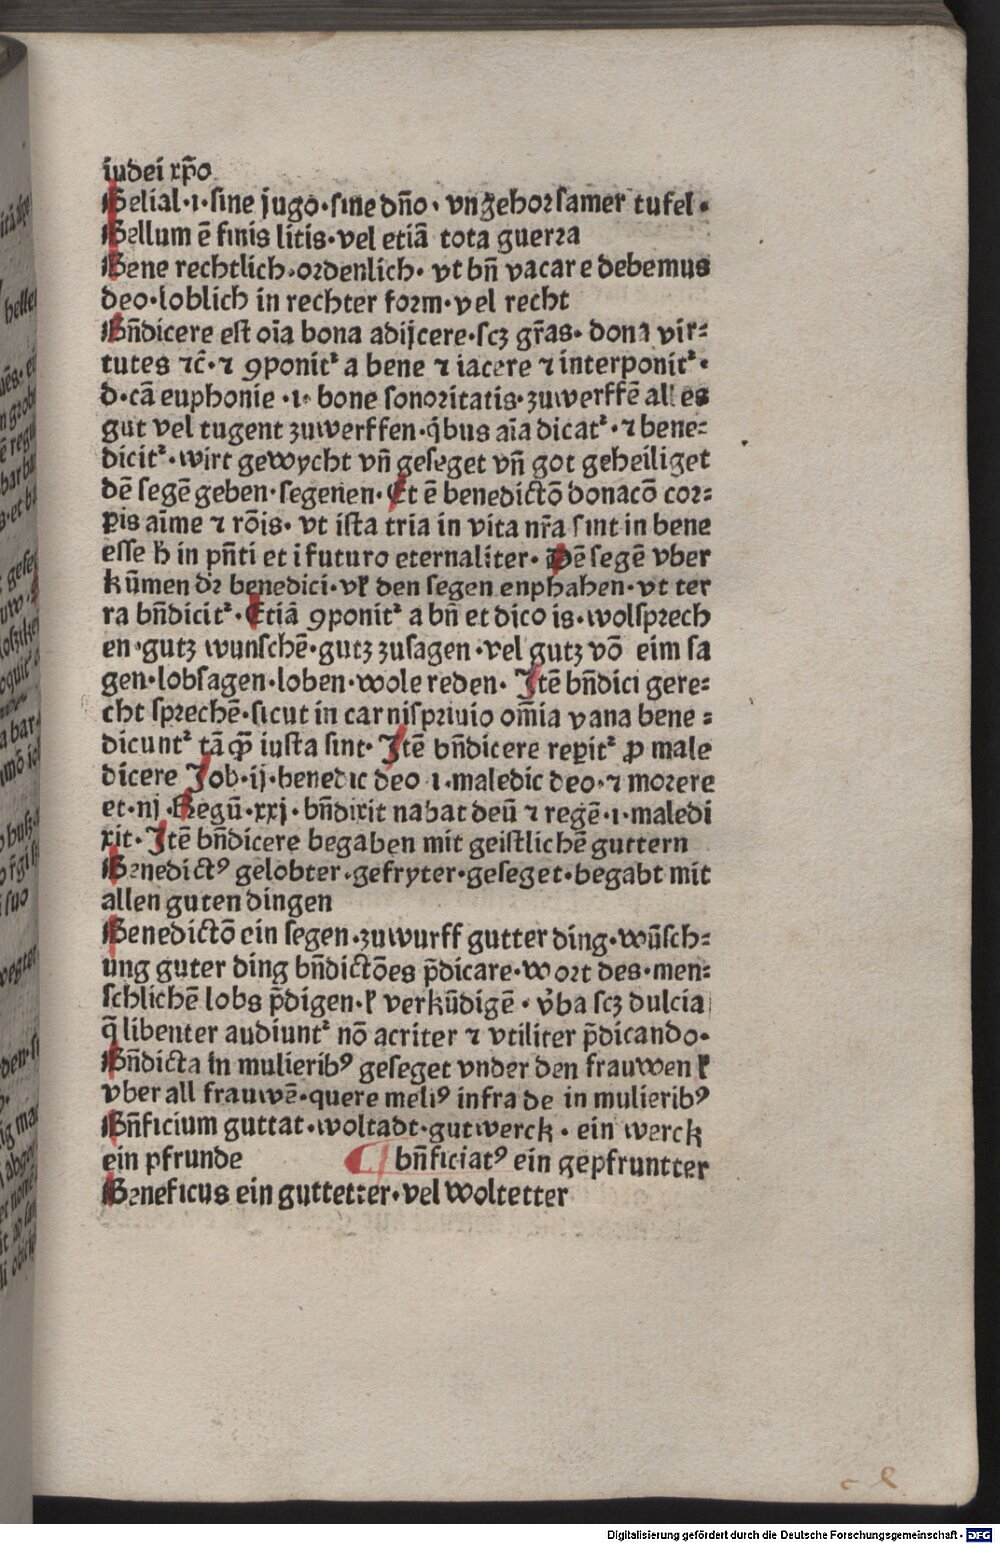 iudei xp̄o
Belial·i·sine jugo·sine dn̄o·vngehorsamer tufel·
Bellum ē finis litis·vel etiā tota guerra
Bene rechtlich·ordenlich·vt bn̄ vacare debemus
deo·loblich in rechter form·vel recht
Bn̄dicere est oīa bona adijcere·scꝫ gr̄as·dona vir⸗
tutes ⁊c̄·⁊ ꝯponit᷑ a bene ⁊ iacere ⁊ interponit᷑·
d·cā euphonie·i·bone sonoritatis·zuwerffē alles
gut vel tugent zuwerffen·q̄bus aīa dicat᷑·⁊ bene⸗
dicit᷑·wirt gewycht vn̄ geseget vn̄ got geheiliget
dē segē geben·segenen·Et ē benedictō donacō cor⸗
ꝑis aīme ⁊ rōis·vt ista tria in vita nr̄a sint in bene
esse h̄ in pn̄ti et i futuro eternaliter·Dē segē vber
kūmen dr̄ benedici·vl̓ den segen enphahen·vt ter
ra bn̄dicit᷑·Etiā ꝯponit᷑ a bn̄ et dico is·wolsprech
en·gutz wunschē·gutz zusagen·vel gutz vō eim sa
gen·lobsagen·loben·wole reden·Itē bn̄dici gere⸗
cht sprechē·sicut in carnispriuio om̄ia vana bene⸗
dicunt᷑ tāꝙ̄ iusta sint·Itē bn̄dicere reꝑit᷑ ꝓ male
dicere Job·ij·benedic deo i·maledic deo·⁊ morere
et·iij·Regū·xxj·bn̄dixit nabat deū ⁊ regē·i·maledi
xit·Itē bn̄dicere begaben mit geistlichē guttern
Benedictꝰ gelobter·gefryter·geseget·begabt mit
allen guten dingen
Benedictō ein segen·zuwurff gutter ding·wūsch⸗
ung guter ding bn̄dictōes p̄dicare·wort des·men⸗
schlichē lobs p̄digen·l̓ verkūdigē·v̓ba scꝫ dulcia
q̄ libenter audiunt᷑ nō acriter ⁊ vtiliter p̄dicando·
Bn̄dicta in mulieribꝰ geseget vnder den frauwen l̓
vber all frauwē·quere meliꝰ infra de in mulieribꝰ
Bn̄ficium guttat·woltadt·gutwerck·ein werck
ein pfrunde ¶ bn̄ficiatꝰ ein gepfruntter
Beneficus ein guttetter·vel woltetter
Digitalisierung gefördert durch die Deutsche Forschungsgemeinschaft - DFG